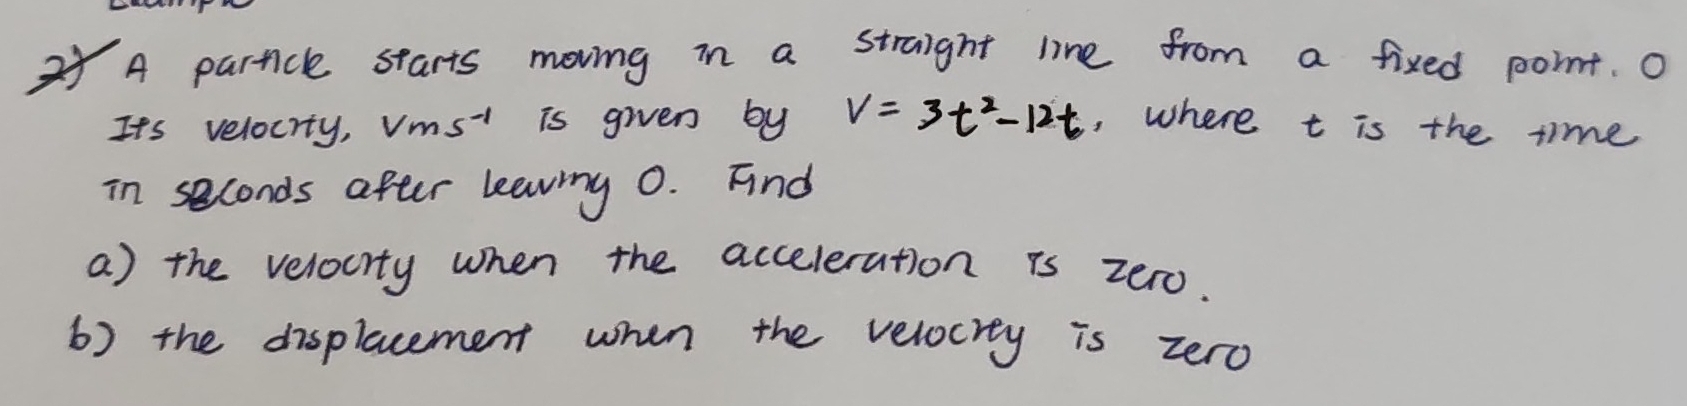 Example
2) A particle starts moving in a straight line from a fixed point. O
Its velocity, Vms⁻¹ is given by V = 3t² - 12t, where t is the time
in seconds after leaving O. Find
a) the velocity when the acceleration is zero.
b) the displacement when the velocity is zero